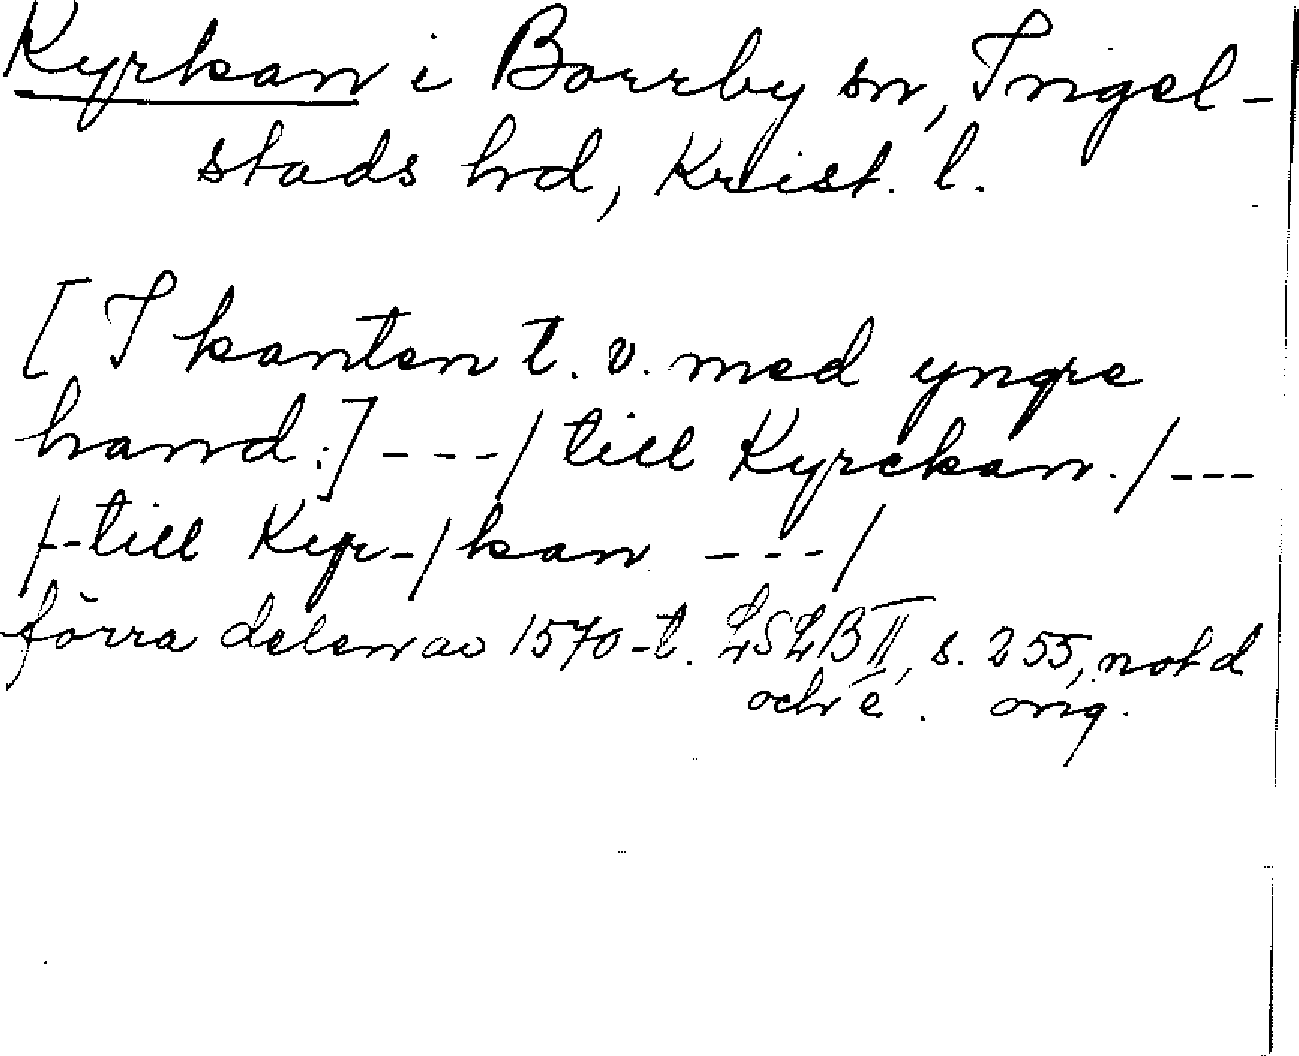 Kyrkan i Borrby sn, Ingel-
stads hd, Krist. l.
[I kanten t. v. med yngre
hand:] ---/ till Kyrckan./---
/--till Kyr-/kan ---/
förra delen av 1570-t. LSLB II, s. 255, not d
och e. orig.